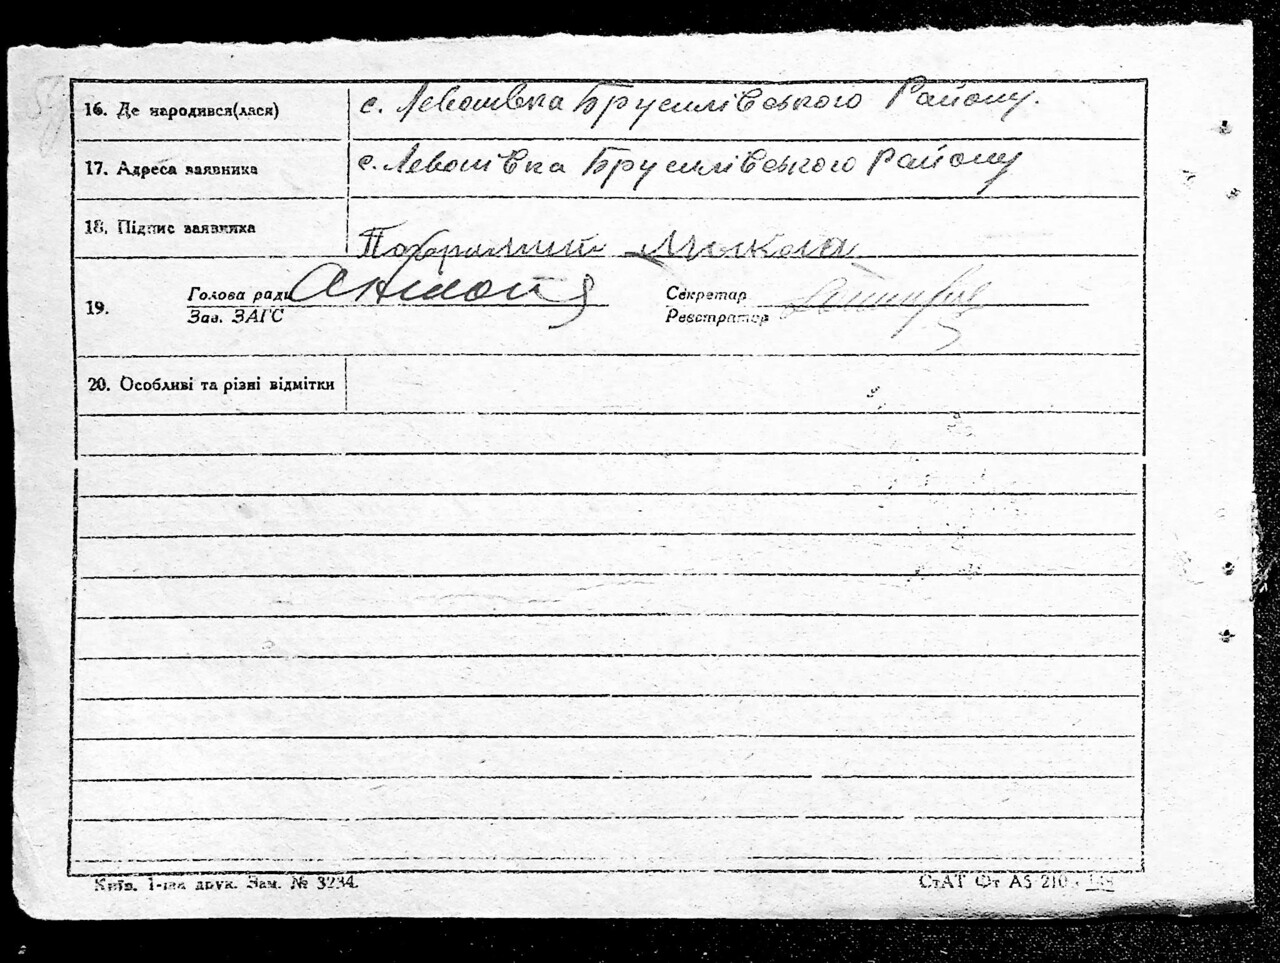 16. Де народився(лася) с. Левошівка Брусилівського Району.
17. Адреса заявника с. Левошівка Брусилівського Району
18. Підпис заявника Микола
19. Голова ради Секретар
Зав. ЗАГС Реєстратор
20. Особливі та різні відмітки
Київ. 1-ша друк. Зам. № 3234.
СтАТ Ф т А5 210